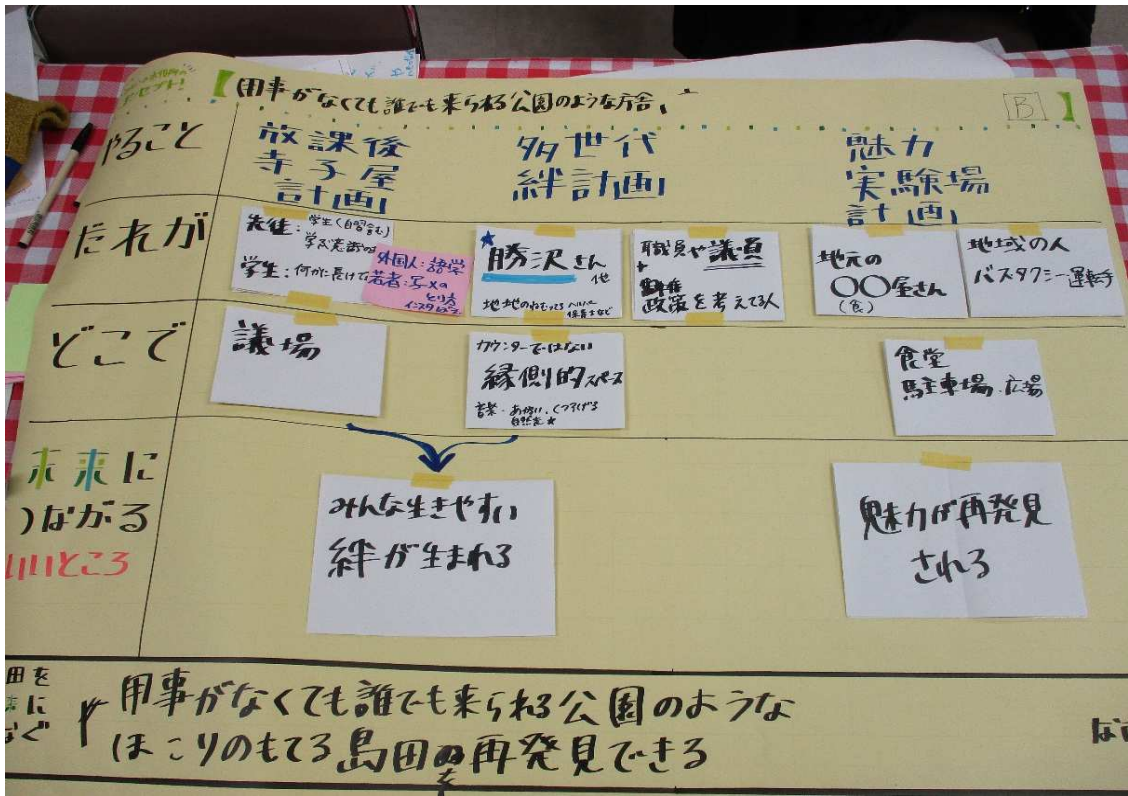 コンセプト!
【用事がなくても誰でも来られる公園のような庁舎】 B
やること
放課後
寺子屋
計画
多世代
絆計画
魅力
実験場
計画
だれが
先生:学生(自習含む)
学生:何かに長けて
外国人:語学
若者:写メの
とり方
インスタ
★
勝沢さん
他
保育士など
職員や議員
+
政策を考えてる人
地元の
〇〇屋さん
(食)
地域の人
バスタクシー運転手
どこで
議場
カウンターではない
縁側的スペース
音楽・明るい、くつろげる
自然光★
食堂
駐車場・広場
未来に
つながる
いいところ
みんな生きやすい
絆が生まれる
魅力が再発見
される
田を
に
用事がなくても誰でも来られる公園のような
ほこりのもてる島田を再発見できる